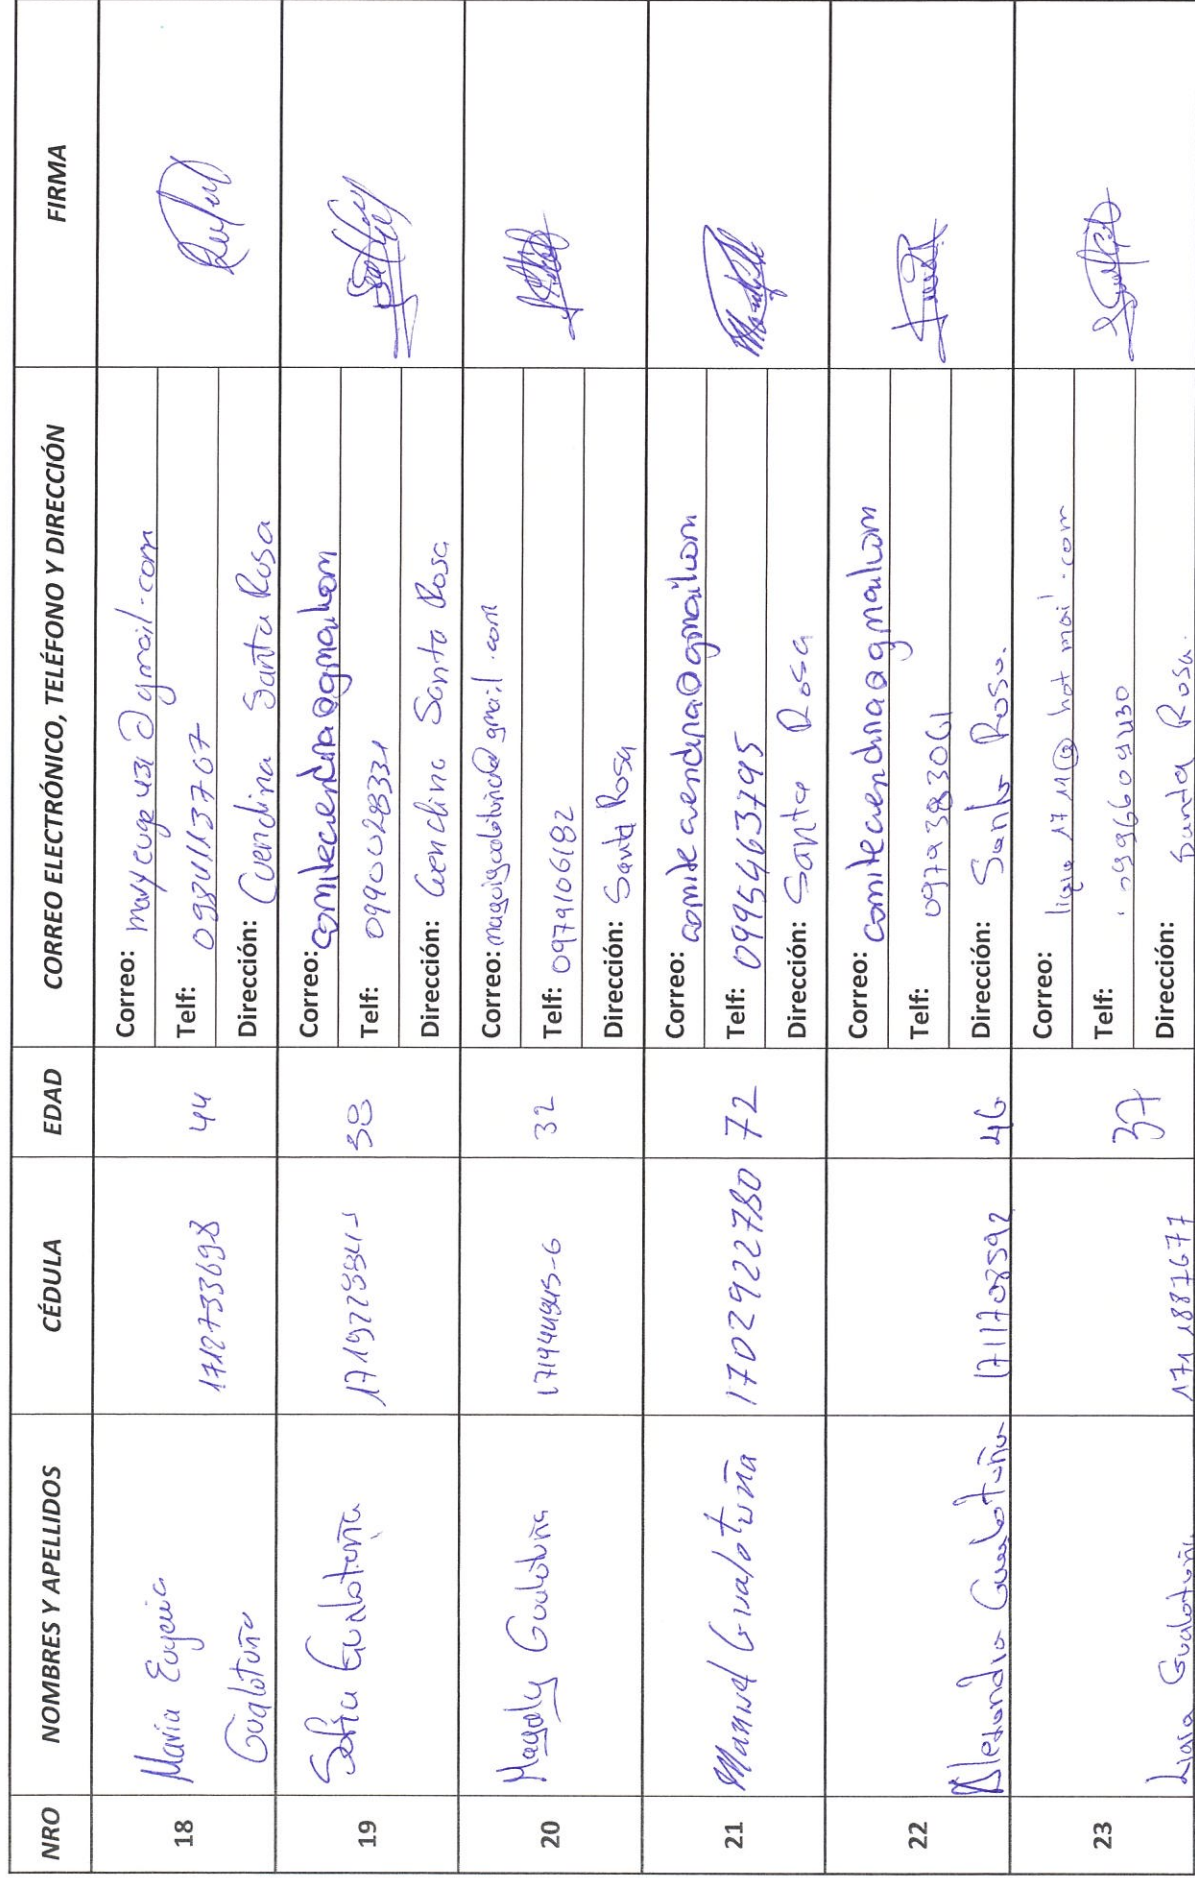 NRO NOMBRES Y APELLIDOS CÉDULA EDAD CORREO ELECTRÓNICO, TELÉFONO Y DIRECCIÓN FIRMA
18 María Eugenia Gualotuña 1712733698 44
Correo: maryeuge431@gmail.com
Telf: 0984113767
Dirección: Cuendina Santa Rosa
19 Sofia Gualotuña 38
Correo: comitecuendina@gmail.com
Telf: 0990028331
Dirección: Cuendina Santa Rosa
20 Magaly Gualotuña 32
Correo: @gmail.com
Telf: 0979106182
Dirección: Santa Rosa
21 Manuel Gualotuña 1702922780 72
Correo: comitecuendina@gmail.com
Telf: 0995463795
Dirección: Santa Rosa
22 Alexandra Gualotuña 1711708592 46
Correo: comitecuendina@gmail.com
Telf: 0979383061
Dirección: Santa Rosa.
23 Ligia Gualotuña 1711887677 37
Correo: @hotmail.com
Telf:
Dirección: Santa Rosa.